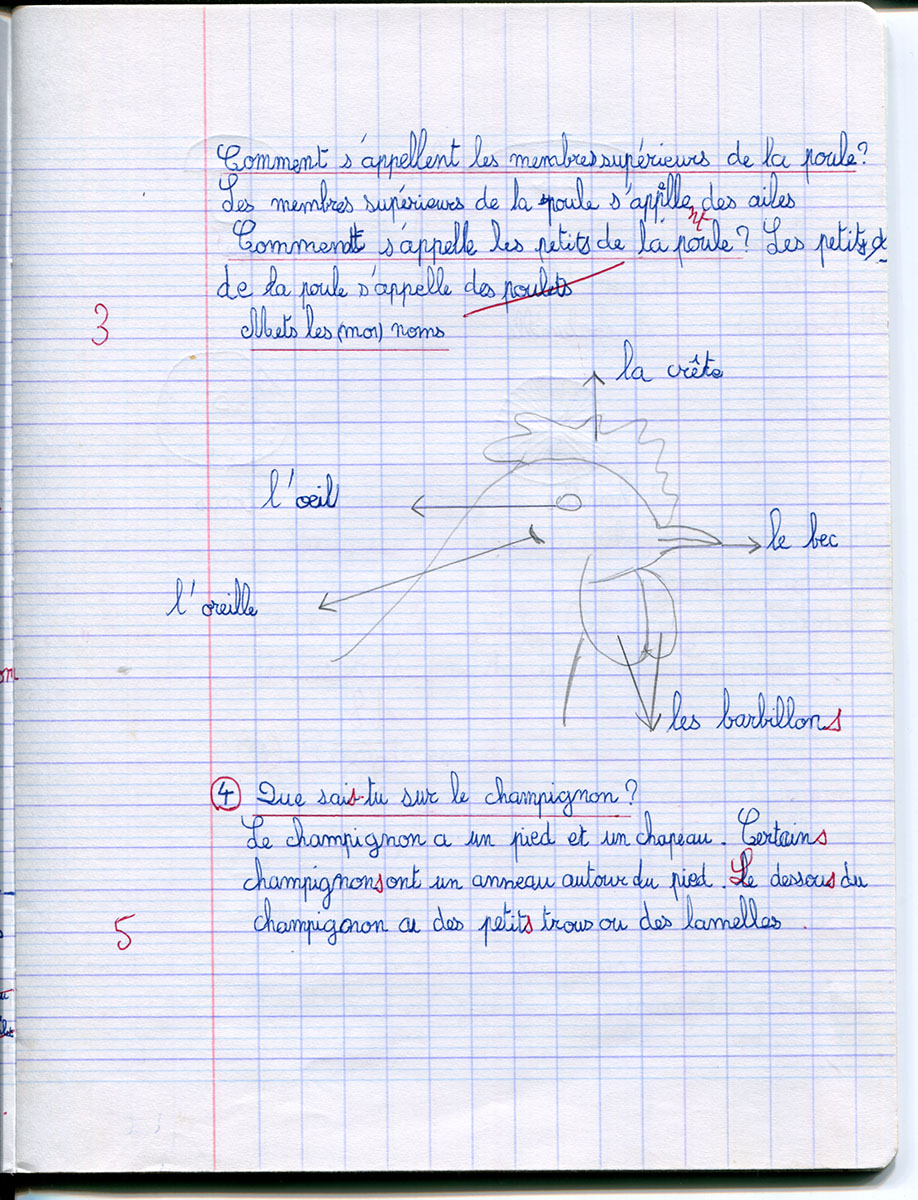 Comment s'appellent les membres supérieurs de la poule?
Les membres supérieurs de la poule s'appelle nt des ailes
Comment s'appelle les petits de la poule? Les petits
de la poule s'appelle des poulets
3
Mets les (moi) noms
la crête
l'oeil
le bec
l'oreille
les barbillons
4 Que sais-tu sur le champignon?
Le champignon a un pied et un chapeau. Certains
champignons ont un anneau autour du pied. Le dessous du
champignon a des petits trous ou des lamelles.
5